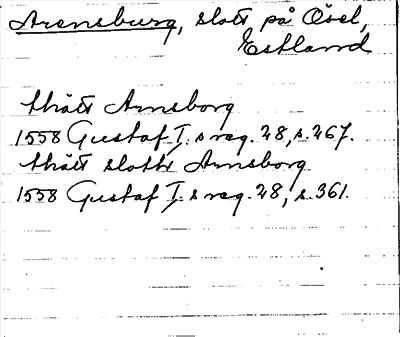 Arensburg, slott på Ösel,
Estland
thått Arnsborg
1558 Gustaf I.s reg. 28, s. 267.
thått slotht Arnsborg
1558 Gustaf I.s reg. 28, s. 361.